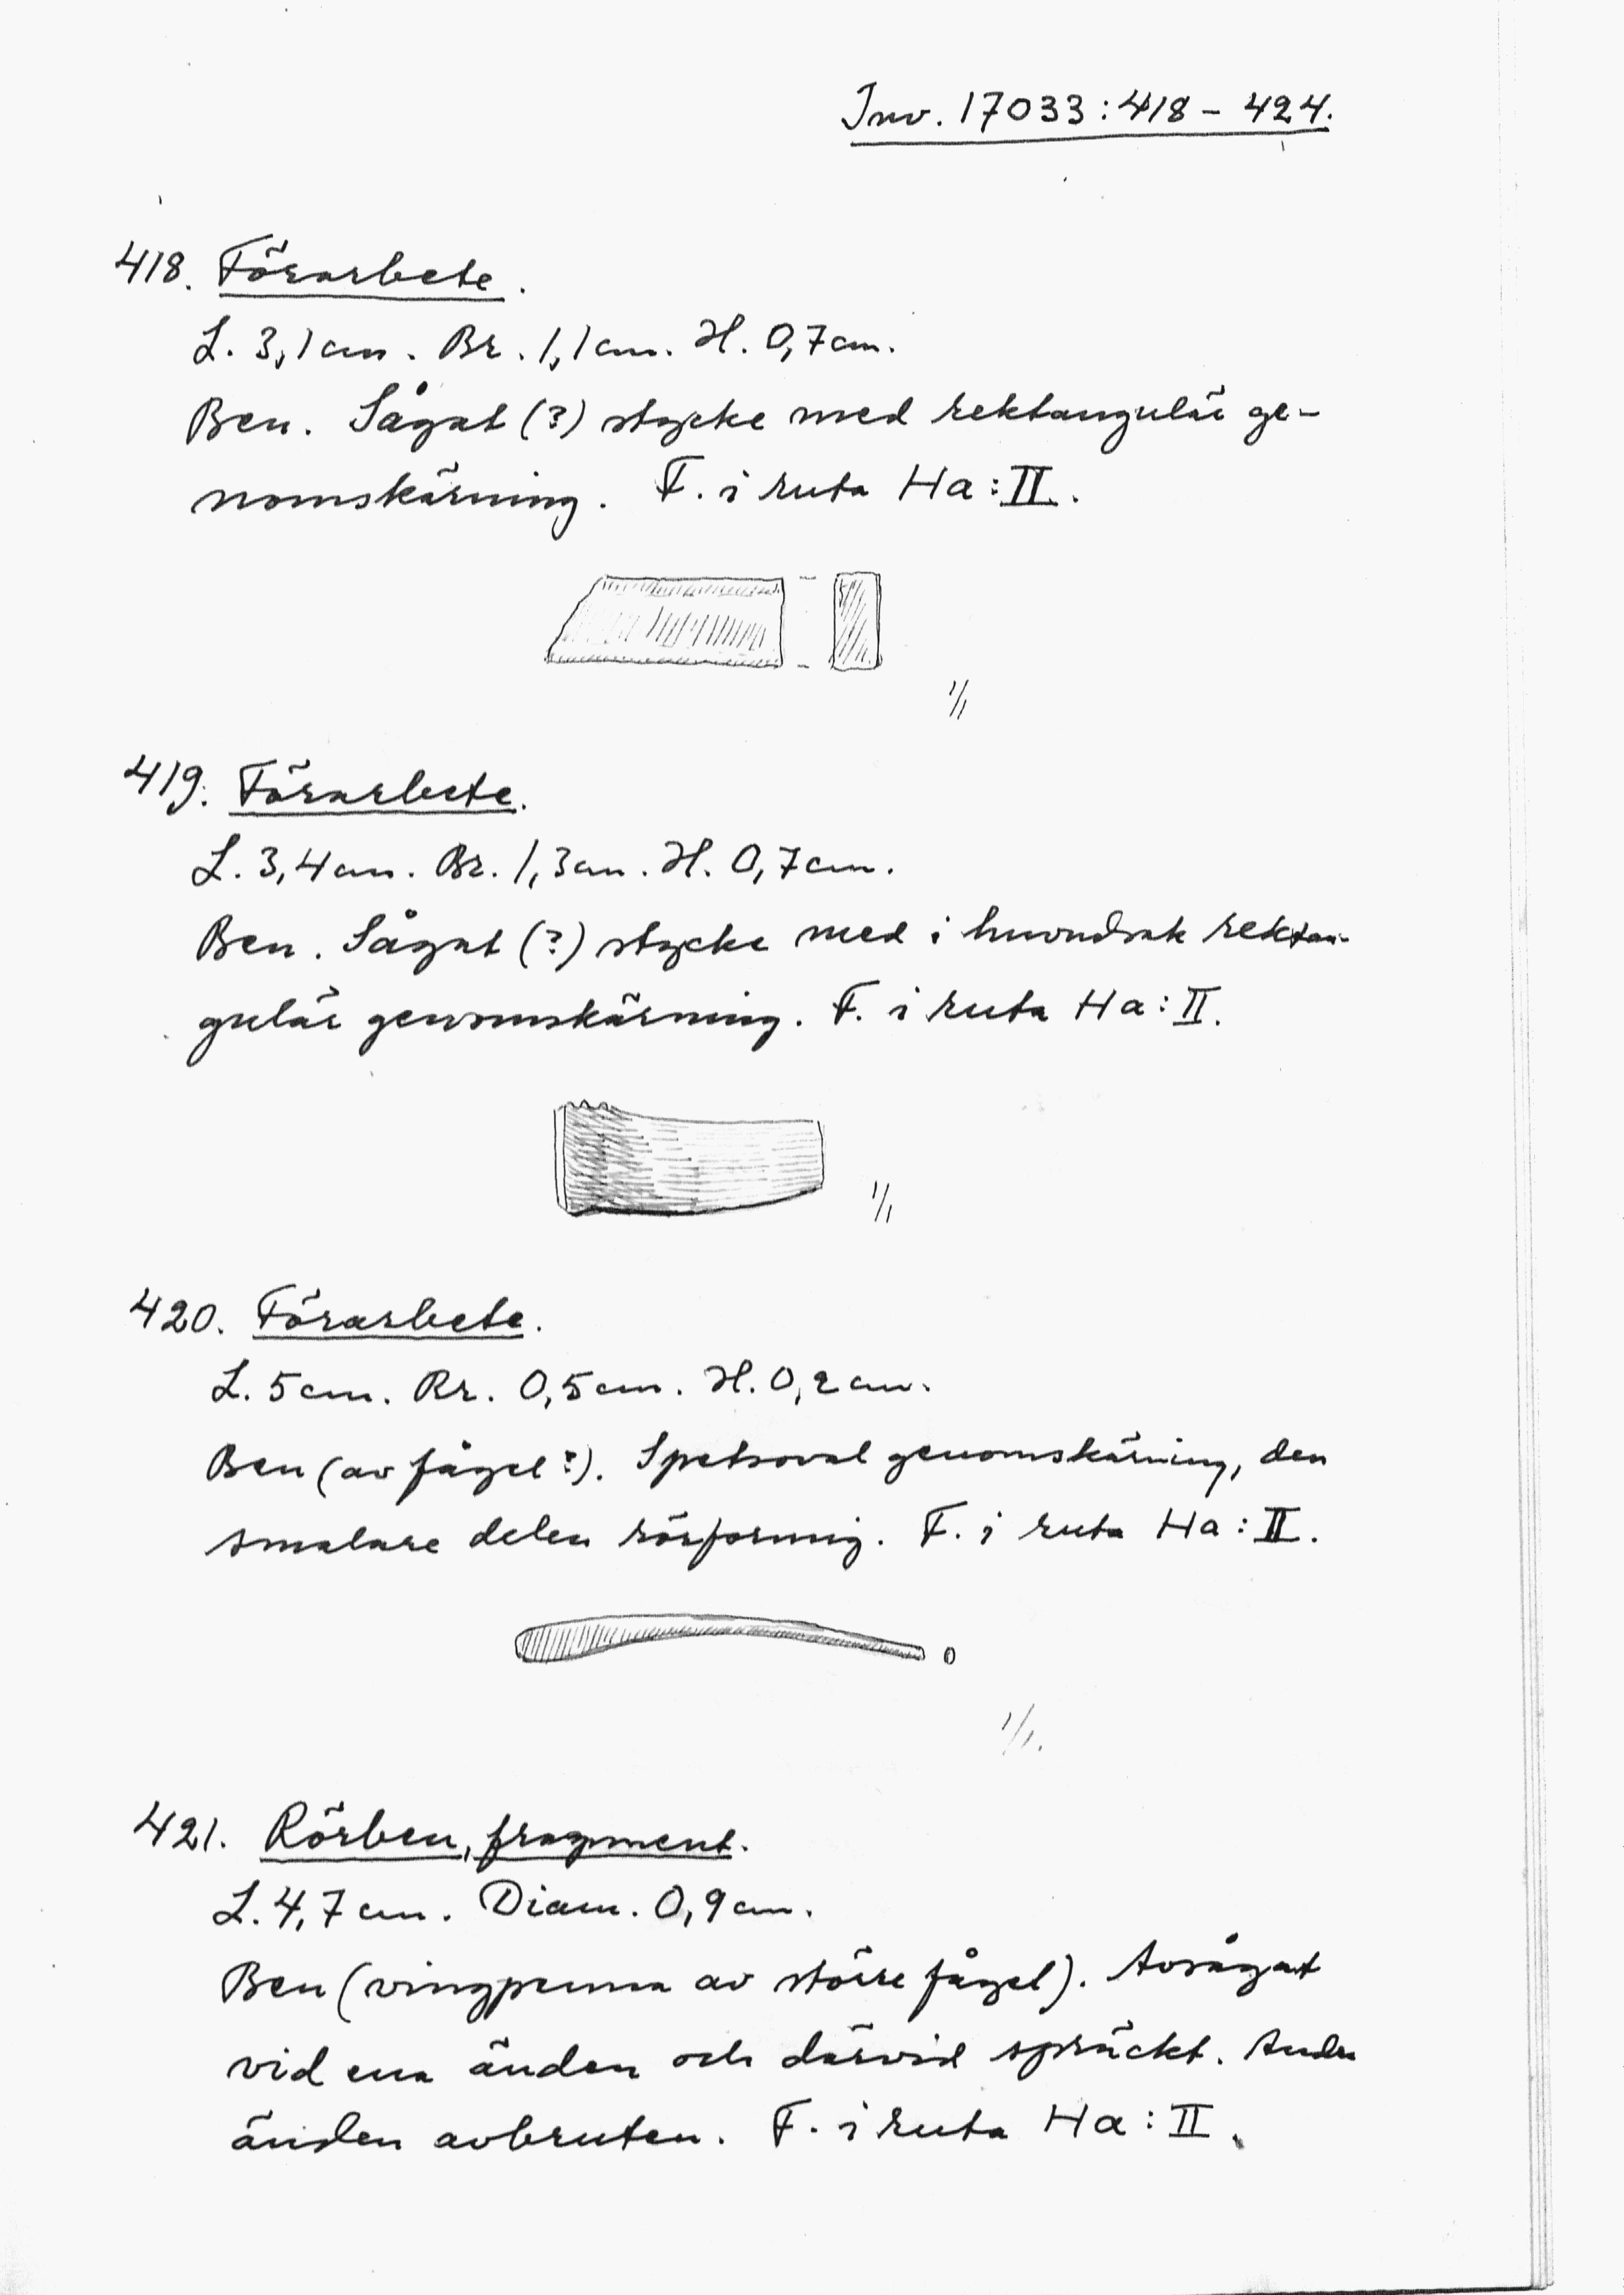 Inv. 17033:418 – 424.
418. Förarbete.
L. 3,1 cm. Br. 1,1 cm. H. 0,7 cm.
Ben. Sågat (?) stycke med rektangulär ge-
nomskärning. F. i ruta Ha:II.
1/1
419. Förarbete.
L. 3,4 cm. Br. 1,3 cm. H. 0,7 cm.
Ben. Sågat (?) stycke med i huvudsak rektan-
gulär genomskärning. F. i ruta Ha:II.
1/1
420. Förarbete.
L. 5 cm. Br. 0,5 cm. H. 0,2 cm.
Ben (av fågel?). Spetsoval genomskärning, den
smalare delen rörformig. F. i ruta Ha:II.
1/1.
421. Rörben, fragment.
L. 4,7 cm. Diam. 0,9 cm.
Ben (vingpenna av större fågel). Avsågat
vid ena änden och därvid spräckt. Andra
änden avbruten. F. i ruta Ha:II.